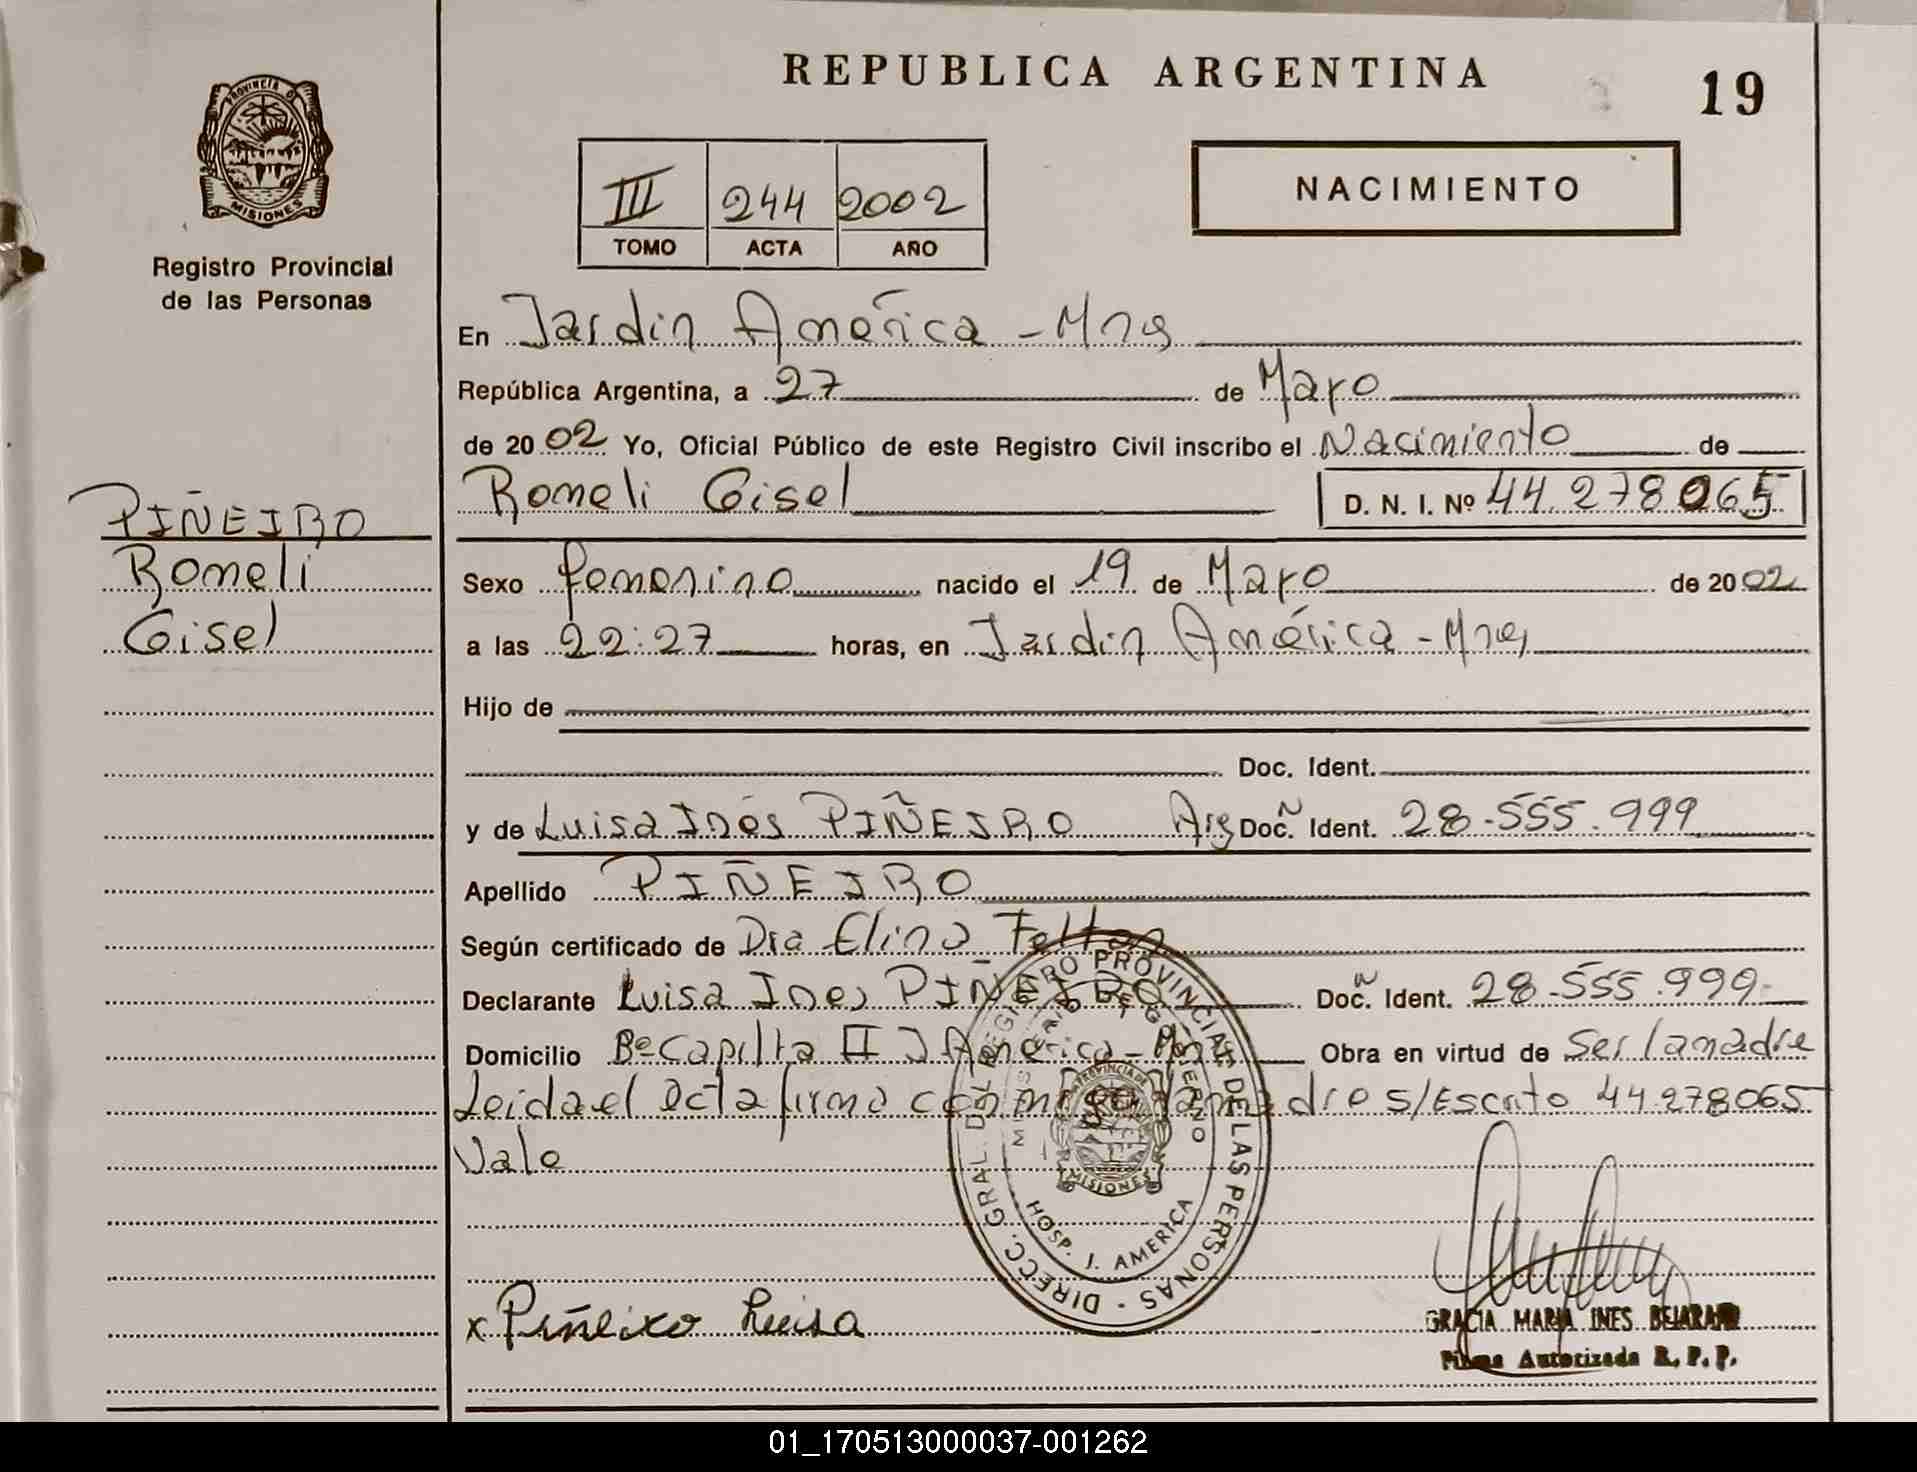 REPUBLICA ARGENTINA
19
PROVINCIA DE
MISIONES
Registro Provincial
de las Personas
III 244 2002
TOMO ACTA AÑO
NACIMIENTO
En Jardin América - Mnes
República Argentina, a 27 de Mayo
de 2002 Yo, Oficial Público de este Registro Civil inscribo el Nacimiento de
Romeli Gisel D. N. I. Nº 44.278065
PIÑEIRO
Romeli
Gisel
Sexo femenino nacido el 19 de Mayo de 2002
a las 22:27 horas, en Jardin América - Mnes
Hijo de
Doc. Ident.
y de Luisa Inés PIÑEIRO Arg Doc. Ident. 28.555.999
Apellido PIÑEIRO
Según certificado de Dra Elina
Declarante Luisa Ines PIÑEIRO Doc. Ident. 28.555.999-
Domicilio Bº Capilla II J América - Mnes Obra en virtud de Ser la madre
Leida el acta firma la madre S/Escrito 44278065
Vale
DIRECC. GRAL. DEL REGISTRO PROVINCIAL DE LAS PERSONAS
MINISTERIO DE GOBIERNO
PROVINCIA DE
MISIONES
HOSP. J. AMERICA
x Piñeixo Luisa
GRACIA MARIA INES BEJARANO
Firma Autorizada R. P. P.
01_170513000037-001262